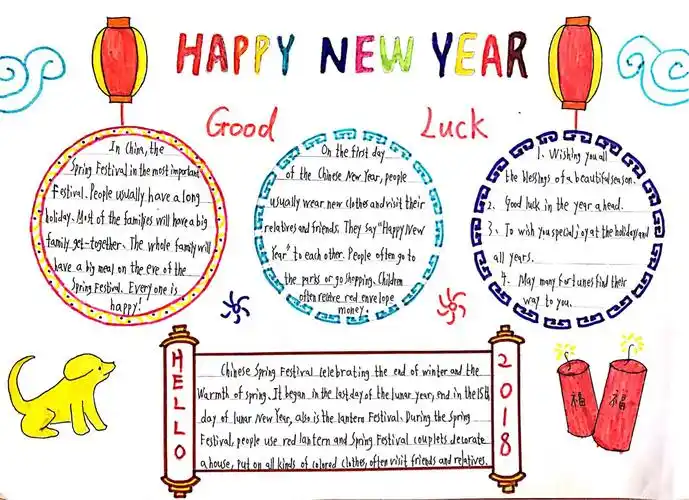 HAPPY NEW YEAR
Good Luck
In China, the
Spring Festival in the most important
Festival. People usually have a long
holiday. Most of the families will have a big
family get-together. The whole family will
have a big meal on the eve of the
Spring Festival. Every one is
happy!
On the first day
of the Chinese New Year, people
usually wear new clothes and visit their
relatives and friends. They say "Happy New
Year" to each other. People often go to
the parks or go shopping. Children
often receive red envelope
money.
1. Wishing you all
the blessings of a beautiful season.
2. Good luck in the year ahead.
3. To wish you special joy at the holiday and
all years.
4. May many fortunes find their
way to you.
HELLO
Chinese Spring Festival celebrating the end of winter and the
warmth of spring. It began in the last day of the lunar year, end in the 15th
day of lunar New Year, also is the lantern Festival. During the Spring
Festival, people use red lantern and Spring Festival couplets decorate
a house, put on all kinds of colored clothes, often visit friends and relatives.
2018
福
福